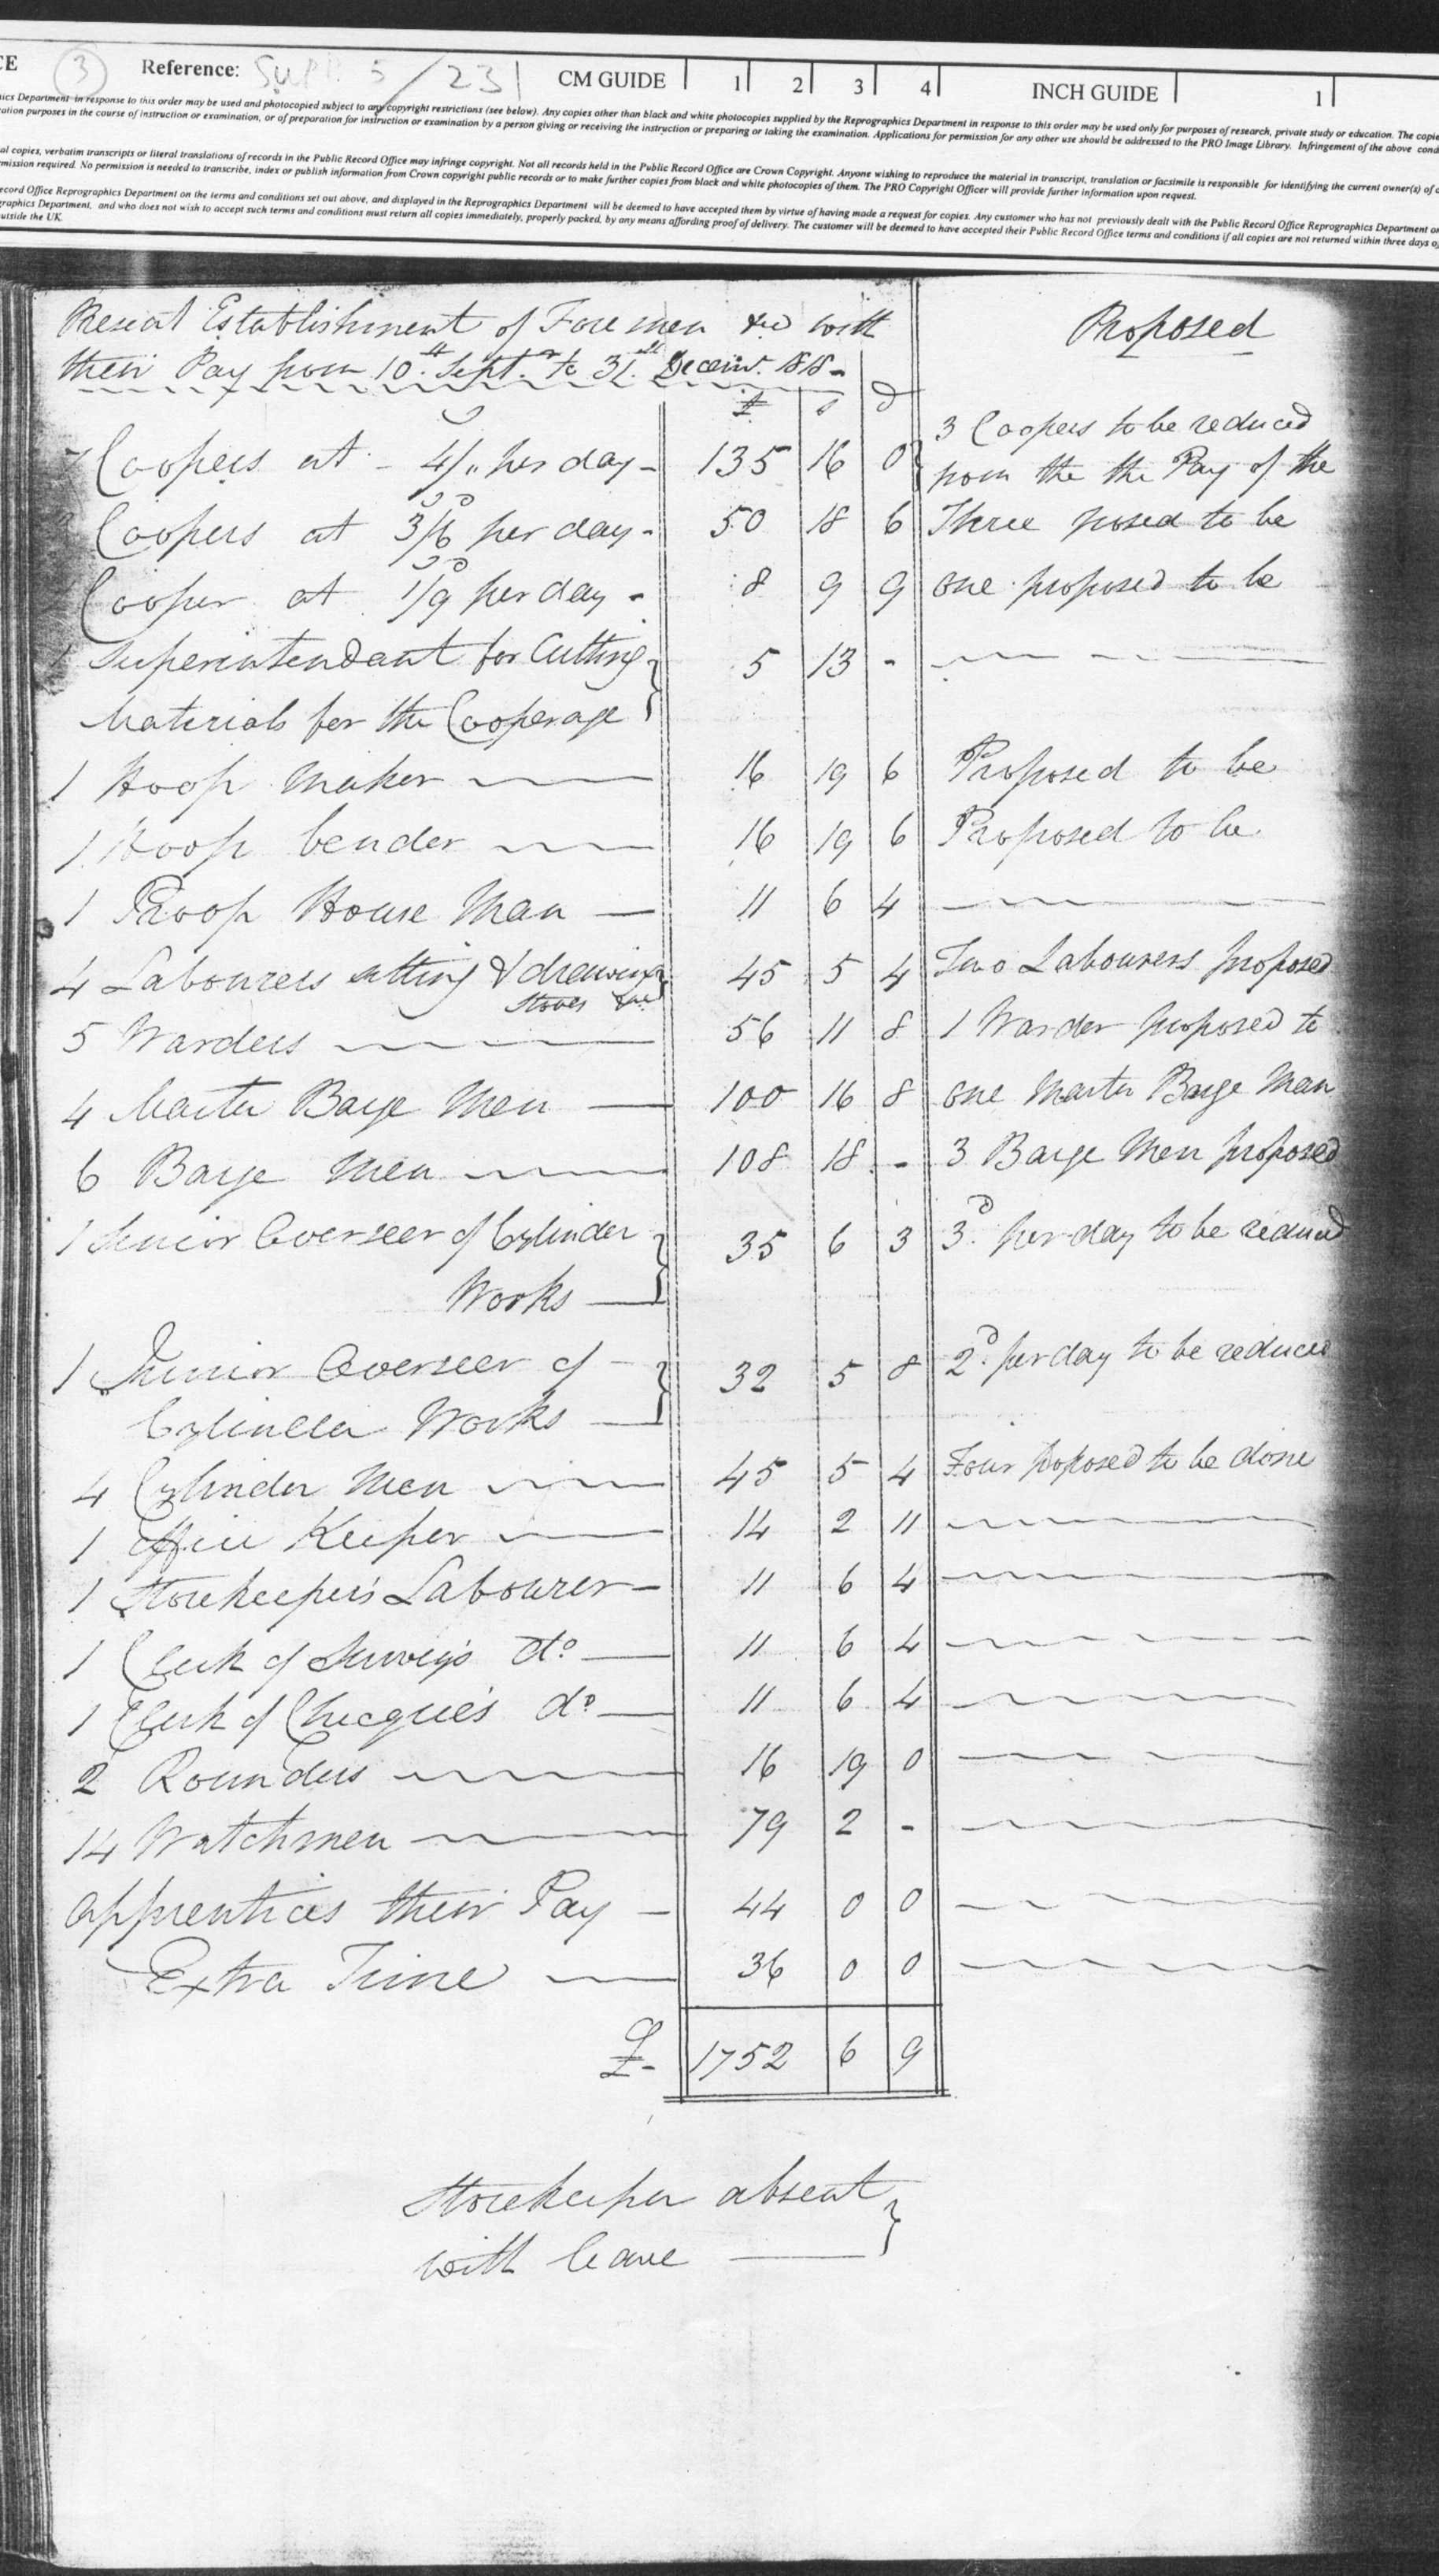 CE 3 Reference: SUPP. 5/231 CM GUIDE 1 2 3 4 INCH GUIDE 1
ics Department in response to this order may be used and photocopied subject to any copyright restrictions (see below). Any copies other than black and white photocopies supplied by the Reprographics Department in response to this order may be used only for purposes of research, private study or education. The copie
ation purposes in the course of instruction or examination, or of preparation for instruction or examination by a person giving or receiving the instruction or preparing or taking the examination. Applications for permission for any other use should be addressed to the PRO Image Library. Infringement of the above cond
al copies, verbatim transcripts or literal translations of records in the Public Record Office may infringe copyright. Not all records held in the Public Record Office are Crown Copyright. Anyone wishing to reproduce the material in transcript, translation or facsimile is responsible for identifying the current owner(s) of c
mission required. No permission is needed to transcribe, index or publish information from Crown copyright public records or to make further copies from black and white photocopies of them. The PRO Copyright Officer will provide further information upon request.
ecord Office Reprographics Department on the terms and conditions set out above, and displayed in the Reprographics Department will be deemed to have accepted them by virtue of having made a request for copies. Any customer who has not previously dealt with the Public Record Office Reprographics Department or
graphics Department, and who does not wish to accept such terms and conditions must return all copies immediately, properly packed, by any means affording proof of delivery. The customer will be deemed to have accepted their Public Record Office terms and conditions if all copies are not returned within three days o
utside the UK.
Present Establishment of Foremen &c with Proposed
their Pay from 10th Septr. to 31st Decemr. 1818 -
£ s d
7 Coopers at - 4/" per day - 135 16 0 3 Coopers to be reduced
from the the Pay of the
Coopers at 3/6 per day - 50 18 6 Three posed to be
1 Cooper at 1/9 per day - 8 9 9 One proposed to be
1 Superintendant for Cutting 5 13 -
Materials for the Cooperage
1 Hoop Maker 16 19 6 Proposed to be
1 Hoop bender 16 19 6 Proposed to be
1 Proof House Man 11 6 4
4 Labourers setting & drawing 45 5 4 Two Labourers proposed
Stoves &c
5 Warders 56 11 8 1 Warder proposed to
4 Master Barge Men 100 16 8 One Master Barge Man
6 Barge Men 108 18 - 3 Barge Men proposed
1 Senior Overseer of Cylinder 35 6 3 3d. per day to be reduced
Works
1 Junior Overseer of - 32 5 8 2d. per day to be reduced
Cylinder Works
4 Cylinder Men 45 5 4 Four proposed to be done
1 Office Keeper 14 2 11
1 Storekeeper's Labourer - 11 6 4
1 Clerk of Survey's do 11 6 4
1 Clerk of Checque's do 11 6 4
2 Rounders 16 19 0
14 Watchmen 79 2 -
Apprentices their Pay - 44 0 0
Extra Time 36 0 0
£ - 1752 6 9
Storekeeper absent
with leave